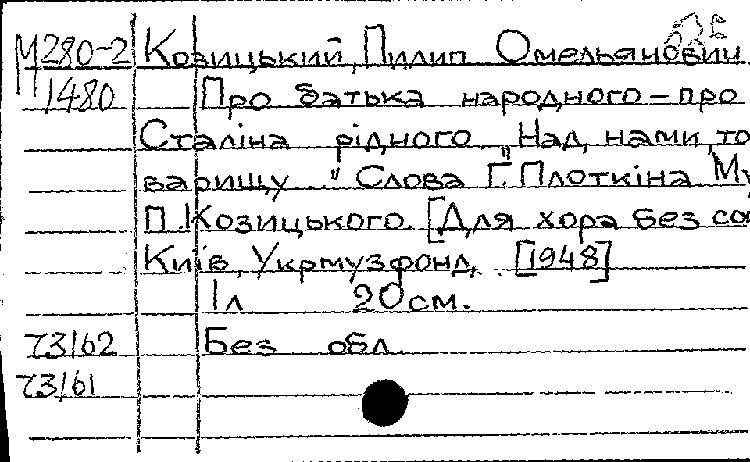 М280-2 Козицький, Пилип Омельянович
1480 Про батька народного – про
Сталіна рідного „Над нами, то
варищу..." Слова Г. Плоткіна Му
П. Козицького. [Для хора без со
Київ, Укрмузфонд, [1948]
1 л 20 см.
73162 Без обл
73161